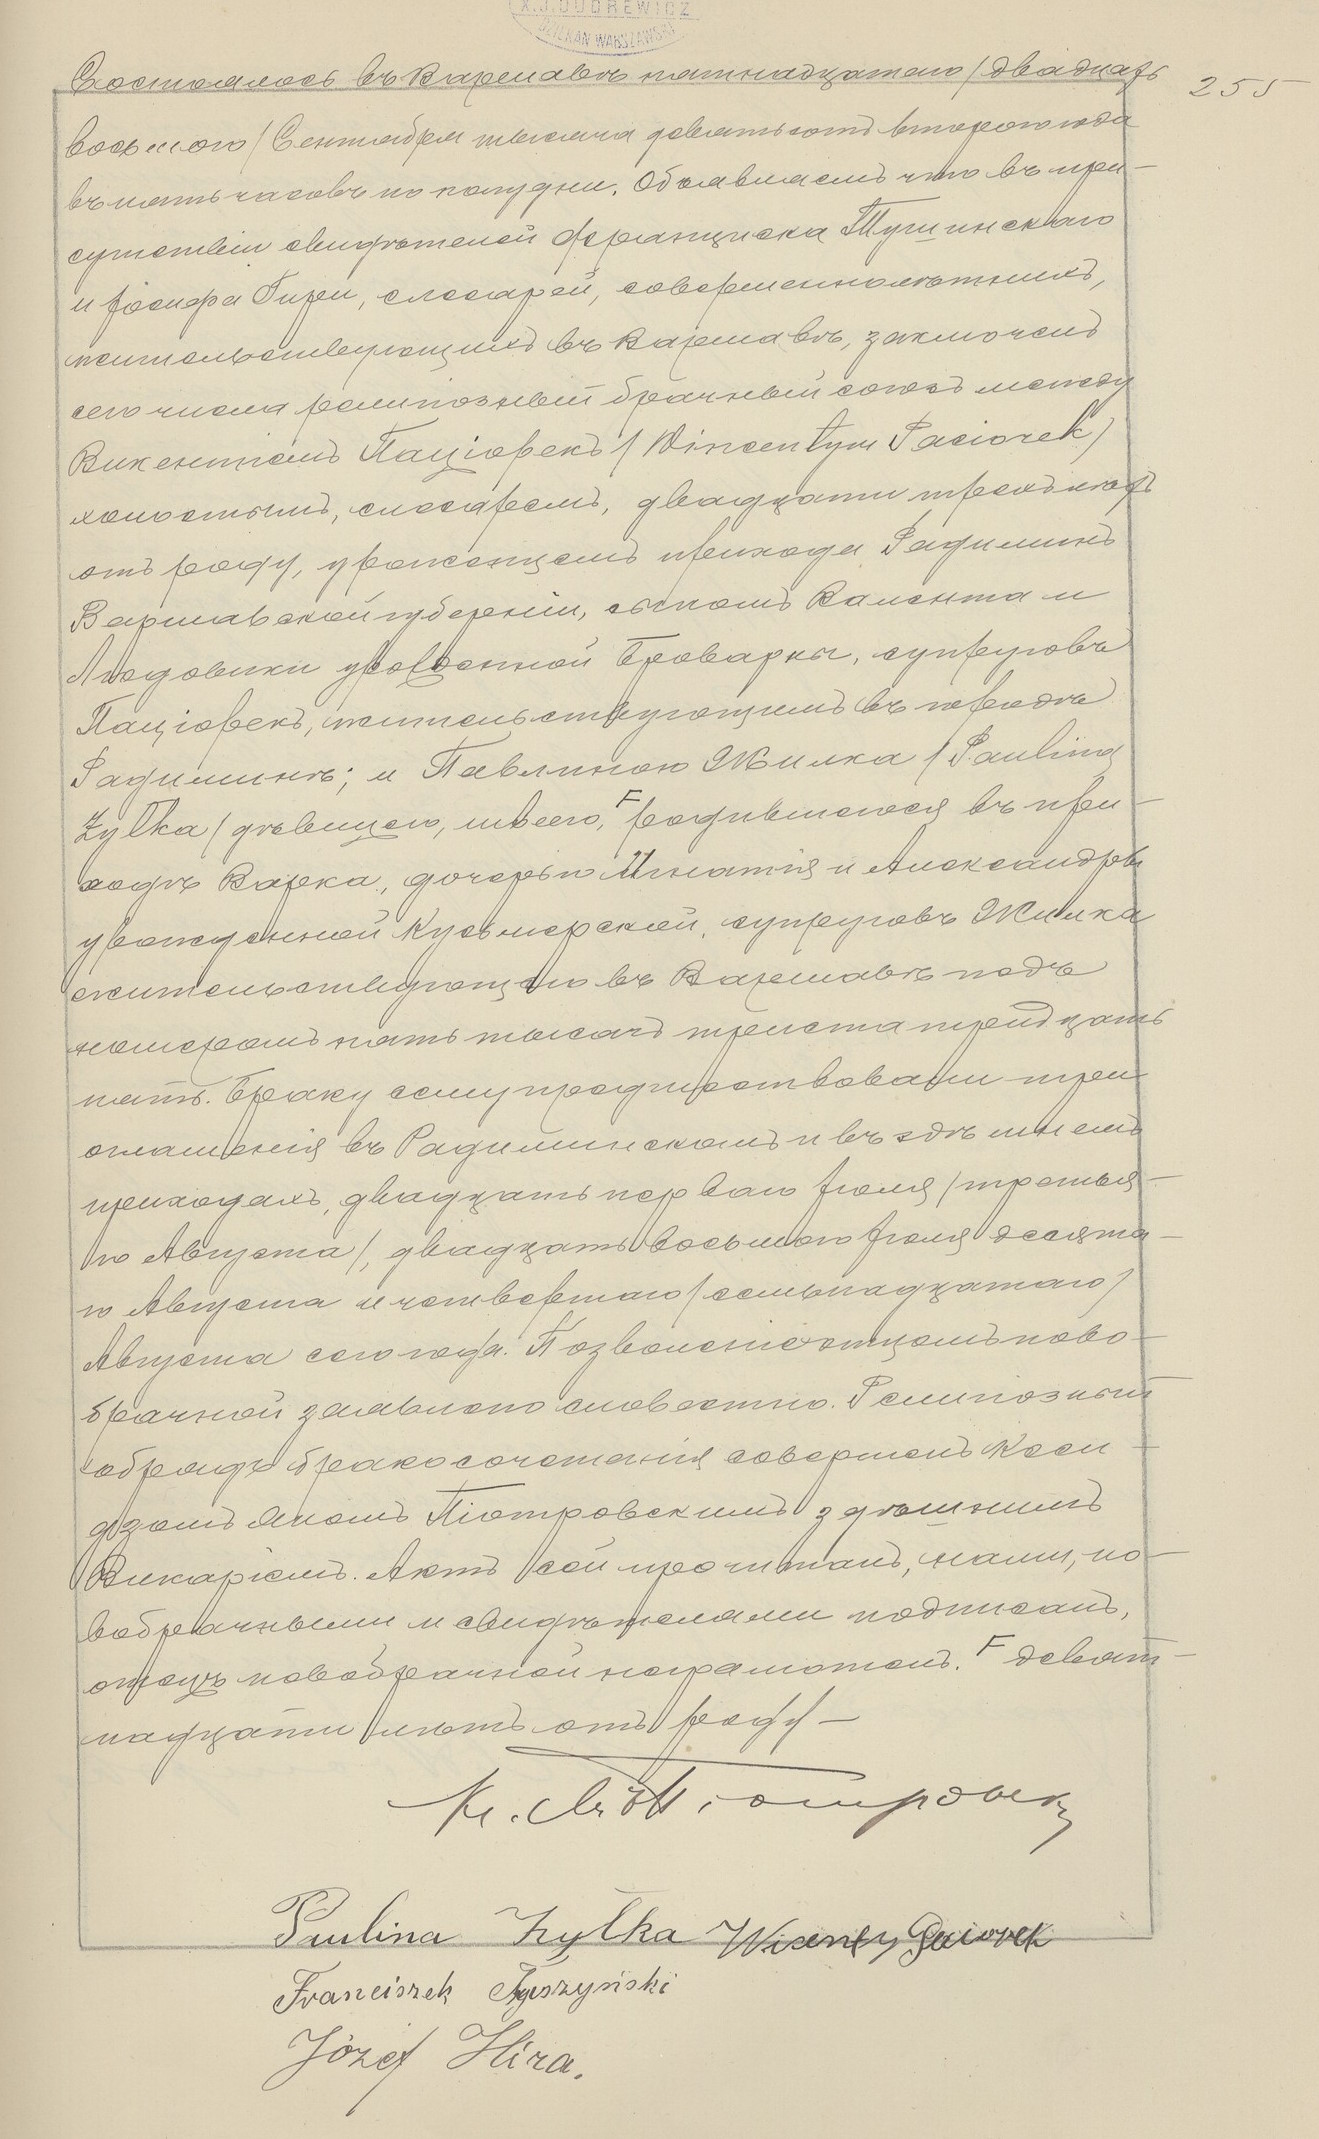 X.J.DUDREWICZ
DZIEKAN WARSZAWSKI
Состоялось въ Варшавѣ пятнадцатаго /двадцать
255
восьмого/ Сентября тысяча девятьсотъ второго года
въ пять часовъ по полудни. Объявляемъ что въ при-
сутствіи свидѣтелей Францишка Тушинскаго
и Іосифа Гиры, слесарей, совершеннолѣтнихъ,
жительствующихъ въ Варшавѣ, заключенъ
сего числа религіозный брачный союзъ между
Викентіемъ Паціорекъ /Wincentym Paciorek/
холостымъ, слесаремъ, двадцати трехъ лѣтъ
отъ роду, уроженцемъ прихода Радиминъ
Варшавской губерніи, сыномъ Валента и
Людовики урожденной Броварки, супруговъ
Паціорекъ, жительствующимъ въ городѣ
Радиминѣ; и Павлиною Жилка /Paulina
Żyłka/ дѣвицею, швеею, F родившеюся въ при-
ходѣ Варка, дочерью Игнатія и Александры
урожденной Кусьмерской, супруговъ Жилка
жительствующею въ Варшавѣ подъ
номеромъ пять тысячъ триста тридцать
пять. Браку сему предшествовали три
оглашенія въ Радиминскомъ и въ здѣшнемъ
приходахъ, двадцать перваго Іюля /третья-
го Августа/, двадцать восьмого Іюля десята-
го Августа и четвертаго /семьнадцатаго/
Августа сего года. Позволеніе отцомъ ново-
брачной заявлено словестно. Религіозный
обрядъ бракосочетанія совершенъ Ксен-
дзомъ Яномъ Піотровскимъ здѣшнимъ
Викаріемъ. Актъ сей прочитанъ, нами, но-
вобрачными и свидѣтелями подписанъ,
отецъ новобрачной неграмотенъ. F девят-
надцати лѣтъ отъ роду —
Кс. Піотровск
Paulina Żyłka Wicenty Paciorek
Franciszek Tuszyński
Józef Hira.